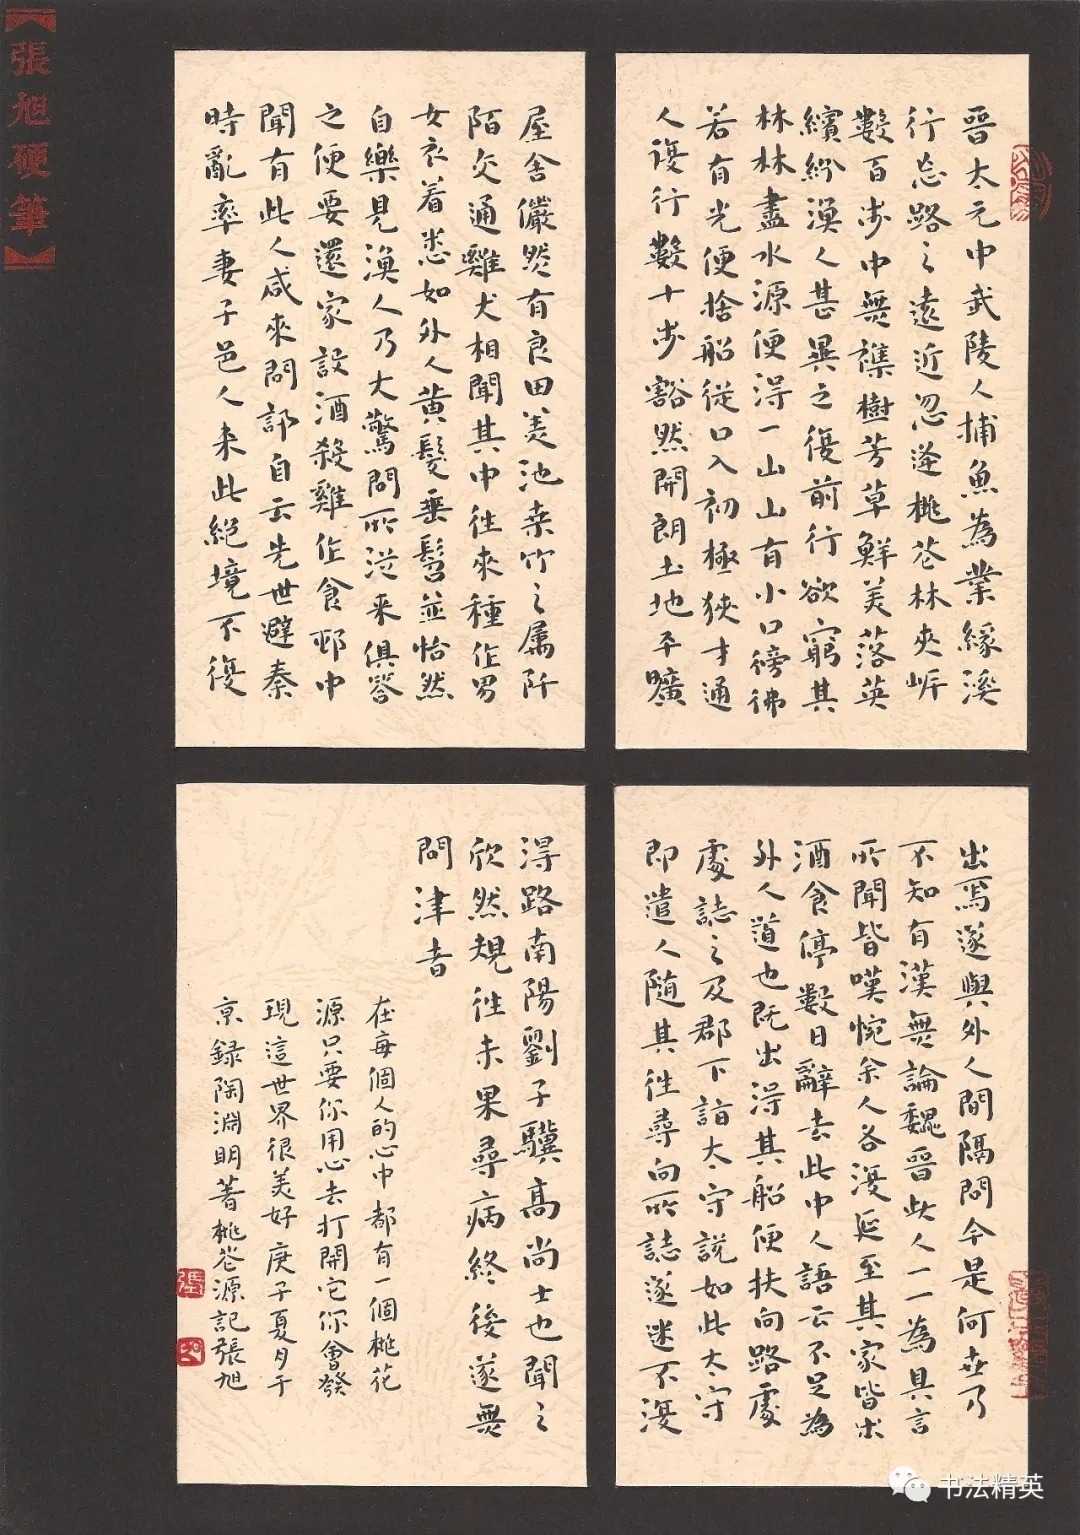 【張旭硬筆】
晉太元中武陵人捕魚為業緣溪
行忘路之遠近忽逢桃花林夾岍
數百步中無雜樹芳草鮮美落英
繽紛漁人甚異之復前行欲窮其
林林盡水源便得一山山有小口彷彿
若有光便捨船從口入初極狹才通
人復行數十步豁然開朗土地平曠
屋舍儼然有良田美池桑竹之属阡
陌交通雞犬相聞其中往來種作男
女衣着悉如外人黄髮垂髫並怡然
自樂見漁人乃大驚問所從来俱答
之便要還家設酒殺雞作食邨中
聞有此人咸來問訊自云先世避秦
時亂率妻子邑人来此絕境不復
出焉遂與外人間隔問今是何世乃
不知有漢無論魏晉此人一一為具言
所聞皆嘆惋余人各復延至其家皆出
酒食停數日辭去此中人語云不足為
外人道也既出得其船便扶向路處
處誌之及郡下詣太守說如此太守
即遣人隨其往尋向所誌遂迷不復
得路南陽劉子驥高尚士也聞之
欣然規往未果尋病終後遂無
問津者
在每個人的心中都有一個桃花
源只要你用心去打開它你會發
現這世界很美好庚子夏月于
京録陶淵明著桃花源記張旭
張
旭
书法精英